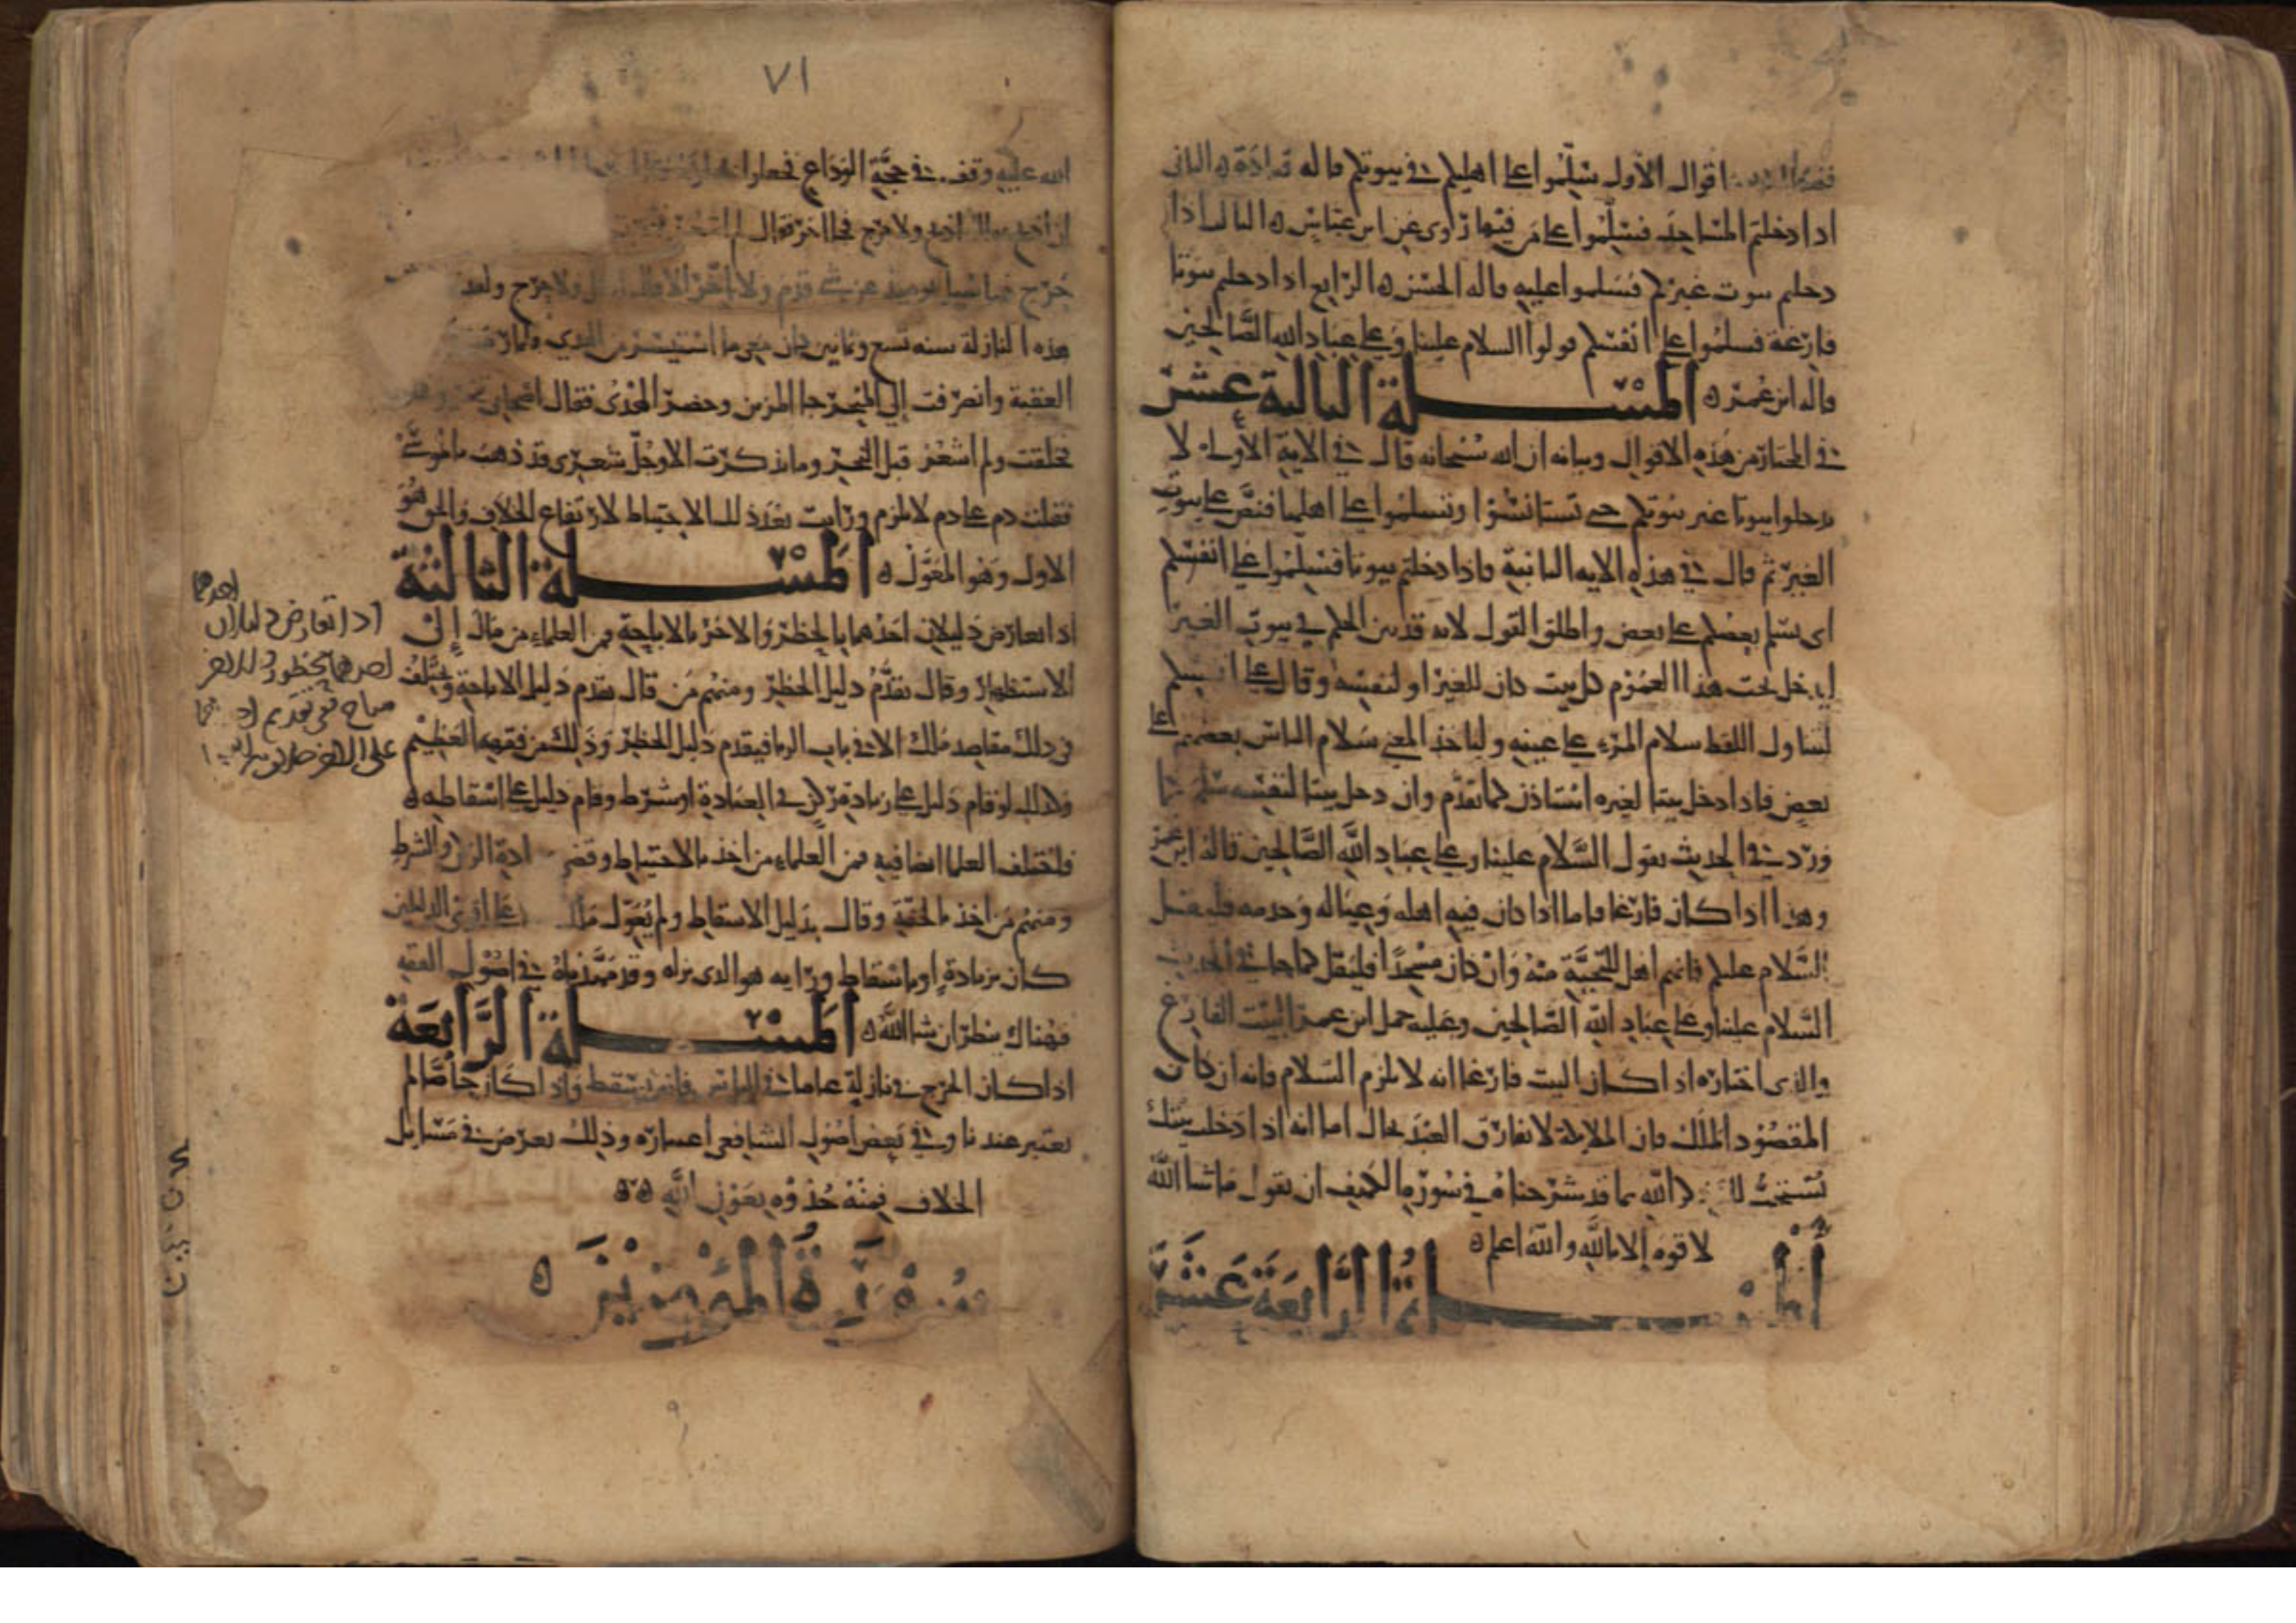 اقوال الأول سلّموا على اهليكم في بيوتكم قاله قتادة ه الثاني
اذا دخلتم المساجد فسلّموا على من فيها روى عن ابن عباس ه الثالث اذا
دخلتم بيوت غيركم فسلموا عليهم قاله الحسن ه الرابع اذا دخلتم بيوتا
فارغة فسلموا على انفسكم قولوا السلام علينا وعلى عباد الله الصالحين
قاله ابن عمر ه المسـلة الثالثة عشر
في المختار من هذه الاقوال وبيانه ان الله سبحانه قال في الاية الأولى لا
تدخلوا بيوتا غير بيوتكم حتى تستانسوا وتسلموا على اهلها فنصّ على بيوت
الغير ثم قال في هذه الايه الثانية فاذا دخلتم بيوتا فسلّموا على انفسكم
اى يسلم بعضكم على بعض واطلق القول لانه قد بين الحكم في بيوت الغير
ليدخل تحت هذا العموم كل بيت كان للغير او لنفسه وقال على انفسكم
ليتناول اللفظ سلام المرء على عينه ولياخذ المعنى سلام الناس بعضهم على
بعض فاذا دخل بيتا لغيره استاذن كما تقدّم وان دخل بيتا لنفسه سلم كما
ورد في الحديث يقول السّلام علينا وعلى عباد الله الصّالحين قاله ابن عمر
وهذا اذا كان فارغا فاما اذا كان فيه اهله وعياله وخدمه فليقل
السّلام عليكم فانهم اهل للتحيّة منه وان كان مسجدًا فليقل كما جا في الحديث
السّلام علينا وعلى عباد الله الصّالحين وعليه حمل ابن عمر البيت الفارغ
والذى اختاره اذا كان البيت فارغا انه لا يلزم السّلام فانه ان كان
المقصود الملك فان الملايكة لا تفارق العبد بحال اما انه اذا دخلت بيتك
يستحبّ لك ذكر الله بما قد شرحناه في سورة الكهف ان تقول ما شا الله
لا قوة إلا بالله والله اعلم ه
المسـلة الرابعة عشر
٧١
الله عليه وقف في حجّة الوداع فجعلوا
اذبح ولا حرج فجا اخر فقال لم اشعر فنحرت
حرج فما سيل يوميذ عن شى قدّم ولا أخّر الا قال افعل ولا حرج ولقد
هذه النازلة سنه تسع وثمانين كان معى ما استيسر من الهدي فلما رميت
العقبة وانصرفت إلى المنحر جا المزين وحضر الهدى فقال اصحابي
فحلقت ولم اشعر قبل النحر وما تذكرت الا وجلّ شعرى قد ذهب بالموسى
فقلت دم على دم لا يلزم ورايت بعد ذلك الاحتياط لارتفاع الخلاف والحق هو
الاول وهو المعوّل ه المسـلة الثالثة
اذا تعارض دليلان احدهما بالحظر والاخر بالاباحة فمن العلماء من مال إلى
الاستظهار وقال يقدّم دليل الحظر ومنهم من قال يقدم دليل الاباحة ويختلف
في ذلك مقاصد ملك الا في باب الربا فيقدم دليل الحظر وذلك من فقهه العظيم
وكذلك لو قام دليل على زيادة ركن في العبادة او شرط وقام دليل على اسقاطه ه
فاختلف العلما ايضا فيه فمن العلماء من اخذ بالاحتياط وقضى الركن والشرط
ومنهم من اخذ بالخفّة وقال بدليل الاسقاط ولم يعوّل ملك على اقوى الدليلين
كان بزيادة او باسقاط ورايه هو الذى نراه وقد مهّدناه في اصول الفقه
فهناك ينظر ان شا الله ه المسـلة الرّابعة
اذا كان الحرج في نازلة عاما في الناس فانه يسقط واذا كان خاصّا لم
يعتبر عندنا وفي بعض اصول الشافعي اعتباره وذلك يعرض في مسايل
الخلاف فمنه خذوه بعون الله ه ه
سورة المؤمنين ه
احدهما
اذا تعارض دليلان